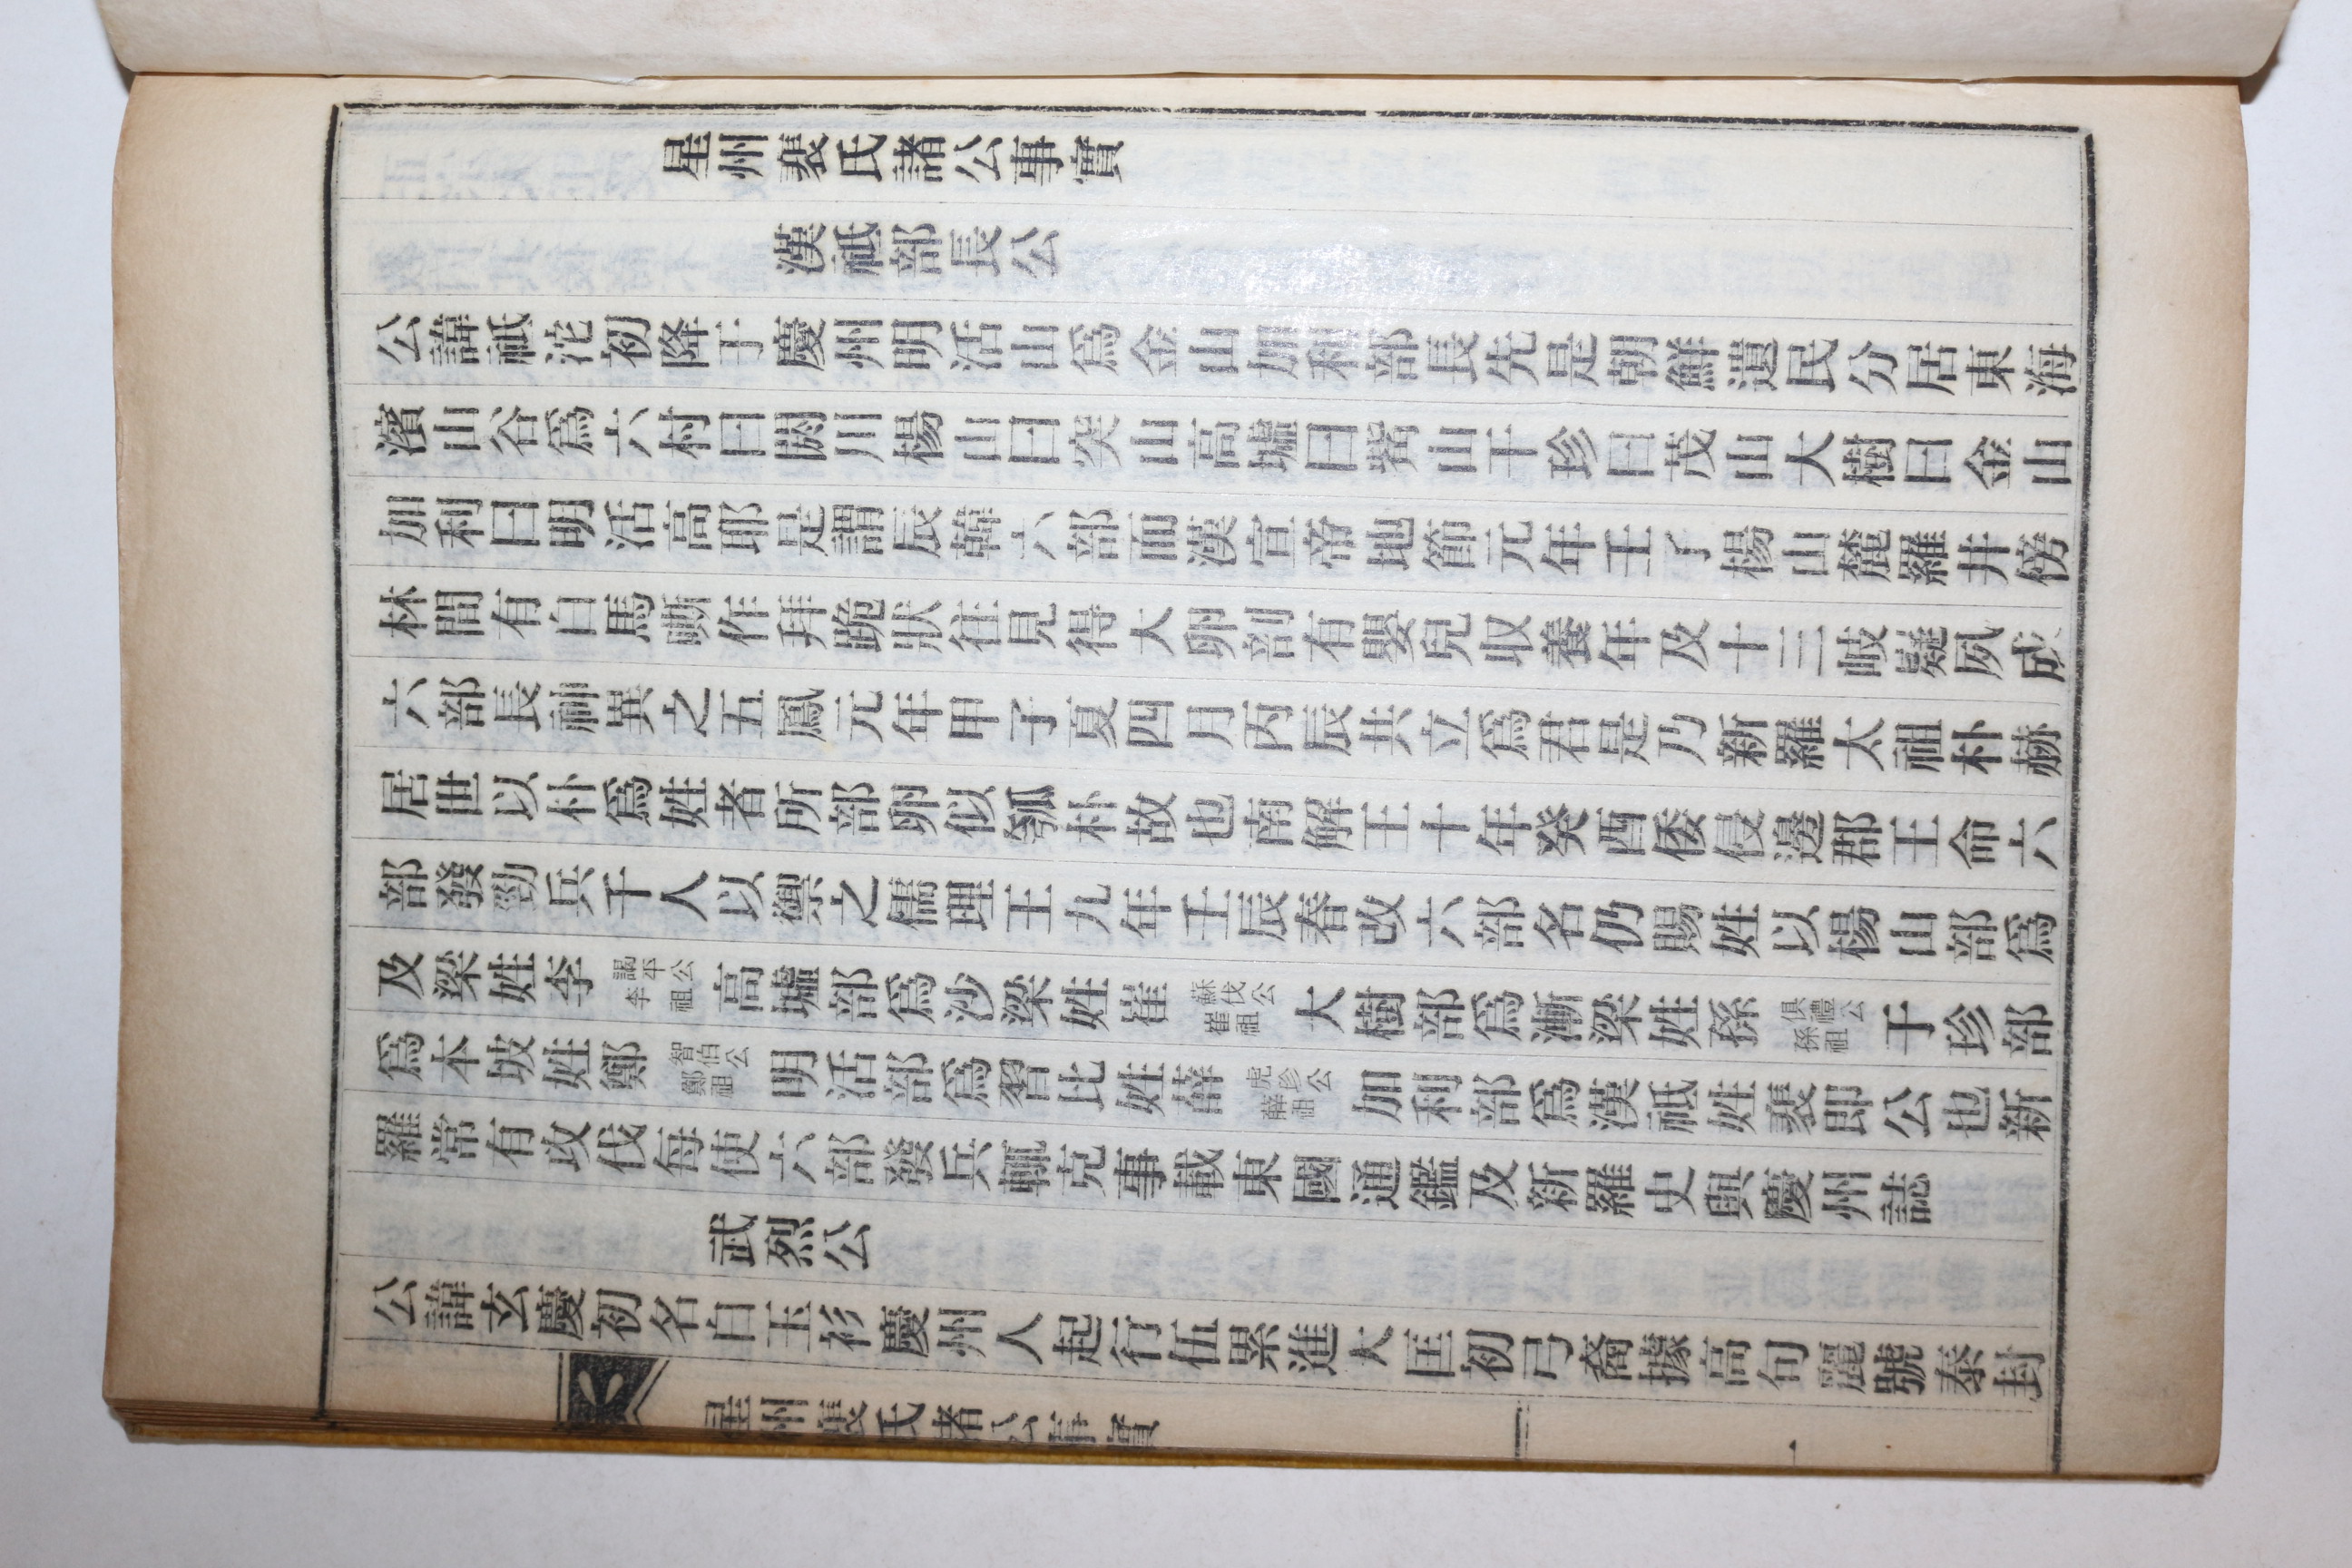 星州裴氏諸公事實
漢祗部長公
公諱祗沱初降于慶州明活山爲金山加利部長先是朝鮮遺民分居東海
濱山谷爲六村曰閼川楊山曰突山高墟曰觜山干珍曰茂山大樹曰金山
加利曰明活高耶是謂辰韓六部而漢宣帝地節元年壬子楊山麓羅井傍
林間有白馬嘶作拜跪狀往見得大卵剖有嬰兒收養年及十三岐嶷夙成
六部長神異之五鳳元年甲子夏四月丙辰共立爲君是乃新羅太祖朴赫
居世以朴爲姓者所部卵似瓠朴故也南解王十年癸酉倭侵邊郡王命六
部發勁兵千人以禦之儒理王九年壬辰春改六部名仍賜姓以楊山部爲
及梁姓李謁平公李祖高墟部爲沙梁姓崔蘇伐公崔祖大樹部爲漸梁姓孫俱禮公孫祖于珍部
爲本坡姓鄭智伯公鄭祖明活部爲習比姓薛虎珍公薛祖加利部爲漢祗姓裴即公也新
羅常有攻伐每使六部發兵輒克事載東國通鑑及新羅史與慶州誌
武烈公
公諱玄慶初名白玉衫慶州人起行伍累進大匡初弓裔據高句麗號泰封
星州裴氏諸公事實